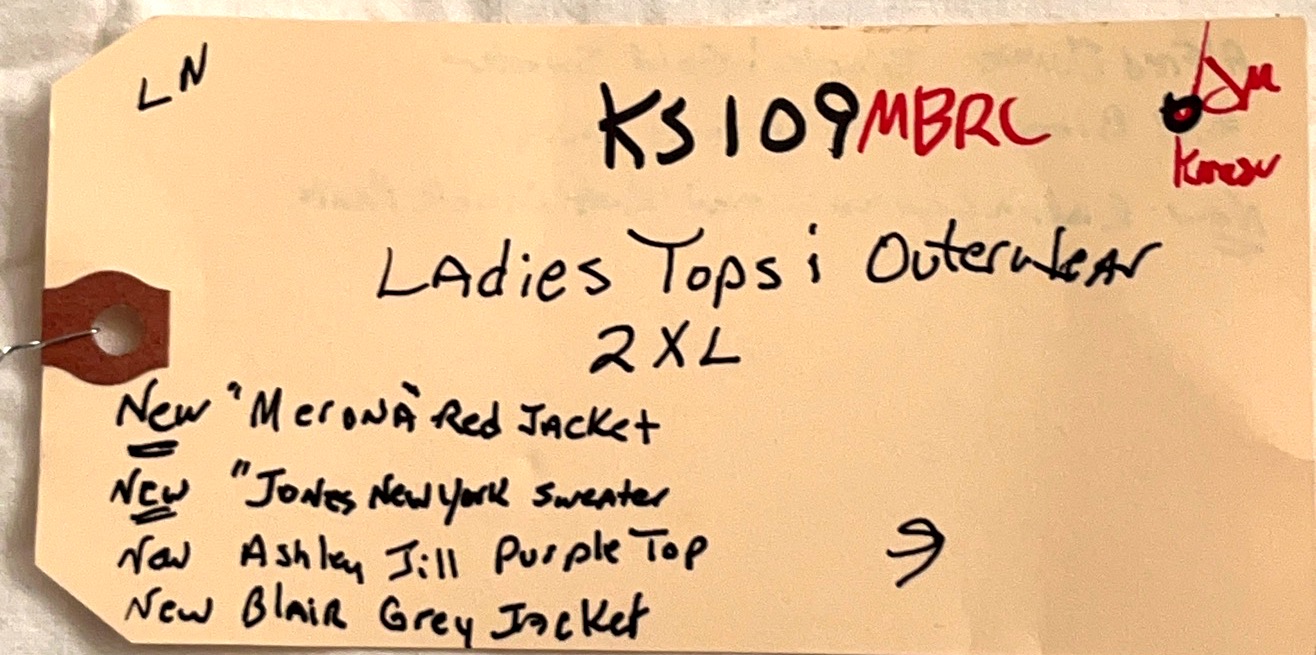 LN
KS109 MBRC
LAdies Tops ; OuterweAr
2XL
New "MeronA" Red JAcket
New "Jones New York sweater
New Ashley Jill Purple Top
New BlAiR Grey Jacket